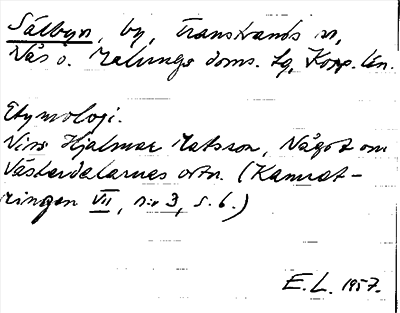 Sälbyn, by, Transtrands sn,
Nås o. Malungs doms. lg, Kopp. län.
Etymologi.
Hjalmar Matsson, Något om
Västerdalarnes ortn. (Kamrat-
ringen VII, nr 3, s. 6.)
E. L. 1957.